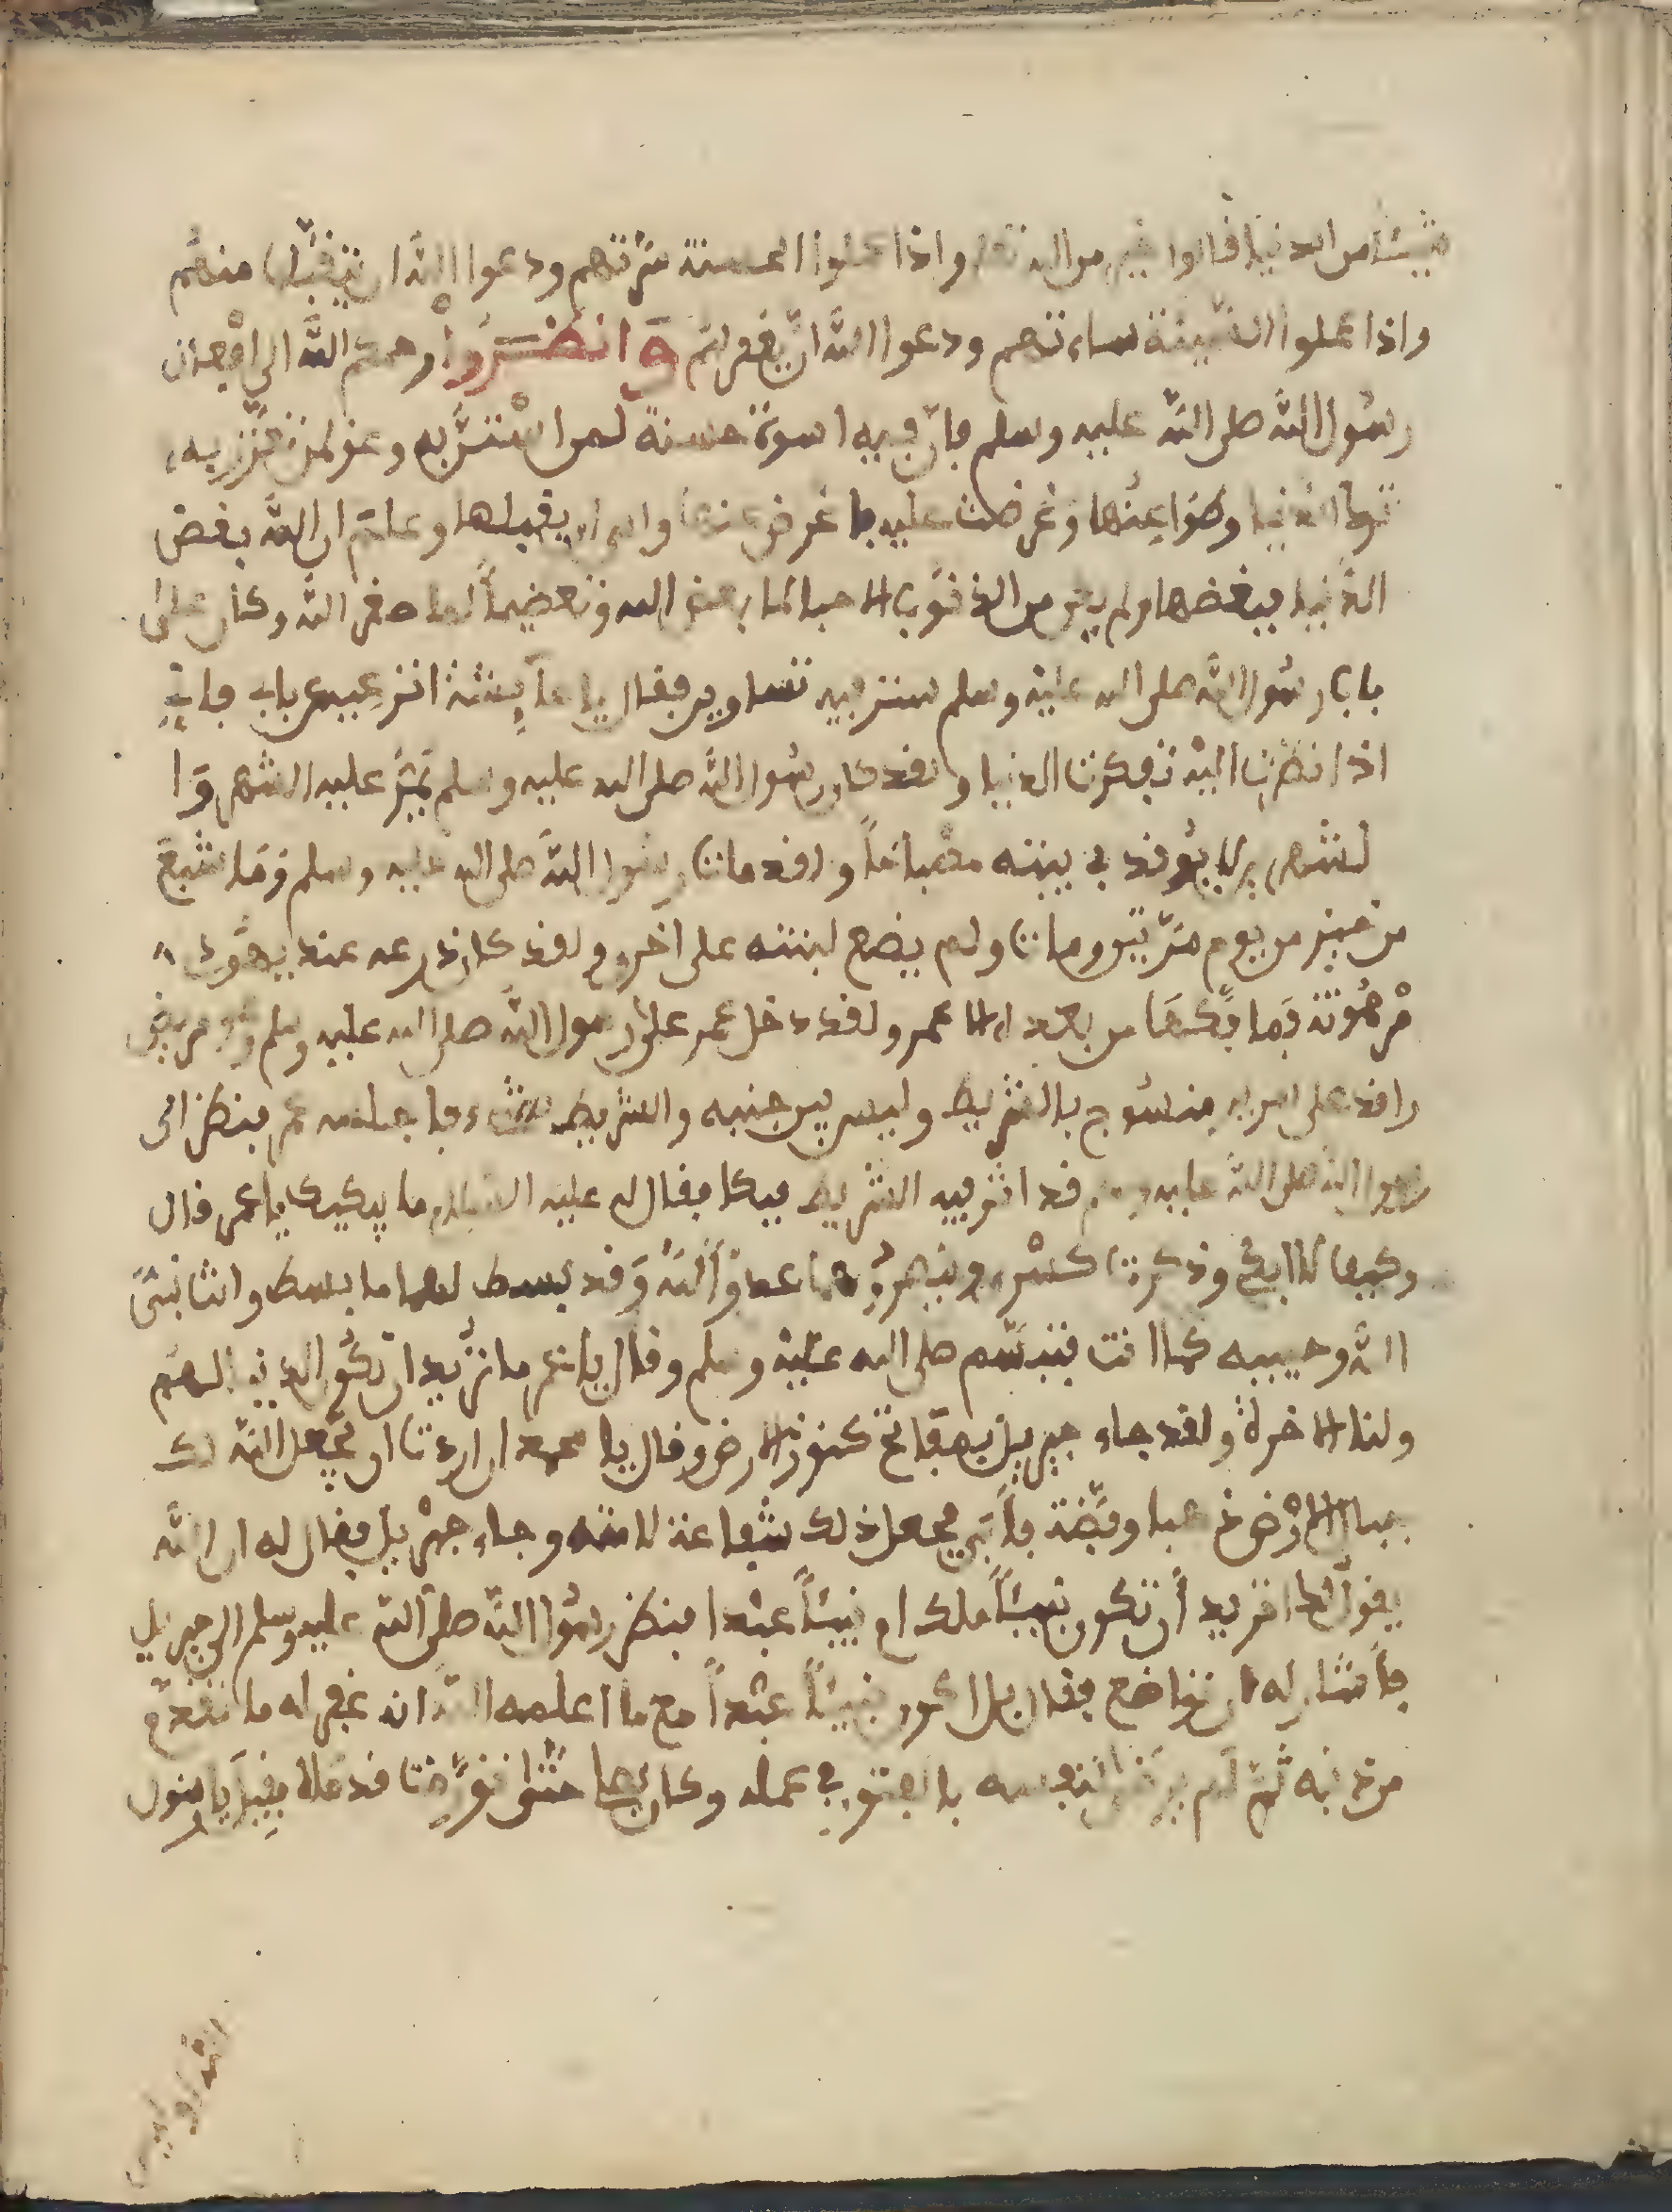 شيئا من الدنيا قالوا خير من الله تعلى واذا عملوا الحسنة سرّتهم ودعوا الله ان يتقبّلها منهم
واذا عملوا السّيئة ساءتهم ودعوا الله انّ يغفر لهم وَانظُــرُوا رحمكم الله الى افعال
رسُول الله صلى الله عليه وسلم فانّ فيه اسوة حسنة لمن استنّ به وعز لمن تعزّز به
الدّنيا وعرضت عليه فيما عرض وابى ان يقبلها وعلم ان الله يبغض
الدّنيا فيبغضها ولم يكن من الذنوب الا حبا لما يبغض الله وتعضيماً لما صغر الله وكان على
باب رسُول الله صلى الله عليه وسلم ستر فيه تصاوير فقال يا عآيشة انزعيه عن باب فانّي
اذا نظرت اليه تفكرت الدنيا ولقد كان رسُول الله صلى الله عليه وسلم تمرُّ عليه الشهر وَا
لشهرين لا يُوقد في بيته مصباحاً ولقد مات رسُول الله صلى الله عليه وسلم وَمَا شبع
من خبز من يوم مَرّتين ومات ولم يضع لبنته على اخرى ولقد كان درعه عند يهُودي
مَرْهُونة فما فكهَا من بعده الا عمر ولقد دخل عمر على رسول الله صلى الله عليه وسلم وهو مريض
راقد على سرير منسُوج بالشريط وليس بين جنبه والشريط شيء فاجلسه عمر فنظر الى
رسول الله صلى الله عليه وسلم قد اثر فيه الشريط فبكا فقال له عليه السّلام ما يبكيك يا عمر قال
وكيف لا ابكي وذكرت كسْرى وقيصر وهما عدوّا اللهَ وَقد بسط لهما ما بسط وانت نبيّ
الله وحبيبه كما انت فتبسّم صلى الله عليه وسلم وقال يا عمر ما تريد ان تكُون الدنيا لهم
ولنا الاخرة ولقد جاء جبريل بمفاتح كنوز الارض وقال يا محمد ان اردت ان يجعل الله لك
جبال الارْض ذهبا وفضّة فابَى فجعل ذلك شفاعة لامته وجاء جبْريل فقال له ان الله
يقول لك اتريد أن تكون نبيئاً ملك او نبيئاً عبْدا فنظر رسُول الله صلى الله عليه وسلم الى جبريل
فأشار له ان تواضع فقال بل اكون نبيئاً عبْداً مع ما اعلمه الله انه غفر له ما تقدّم
من ذنبه ثمّ لم يرض لنفسه بالفتور في عمله وكان يصلي حتّى تورّمت قدماه فيقال يا رسول